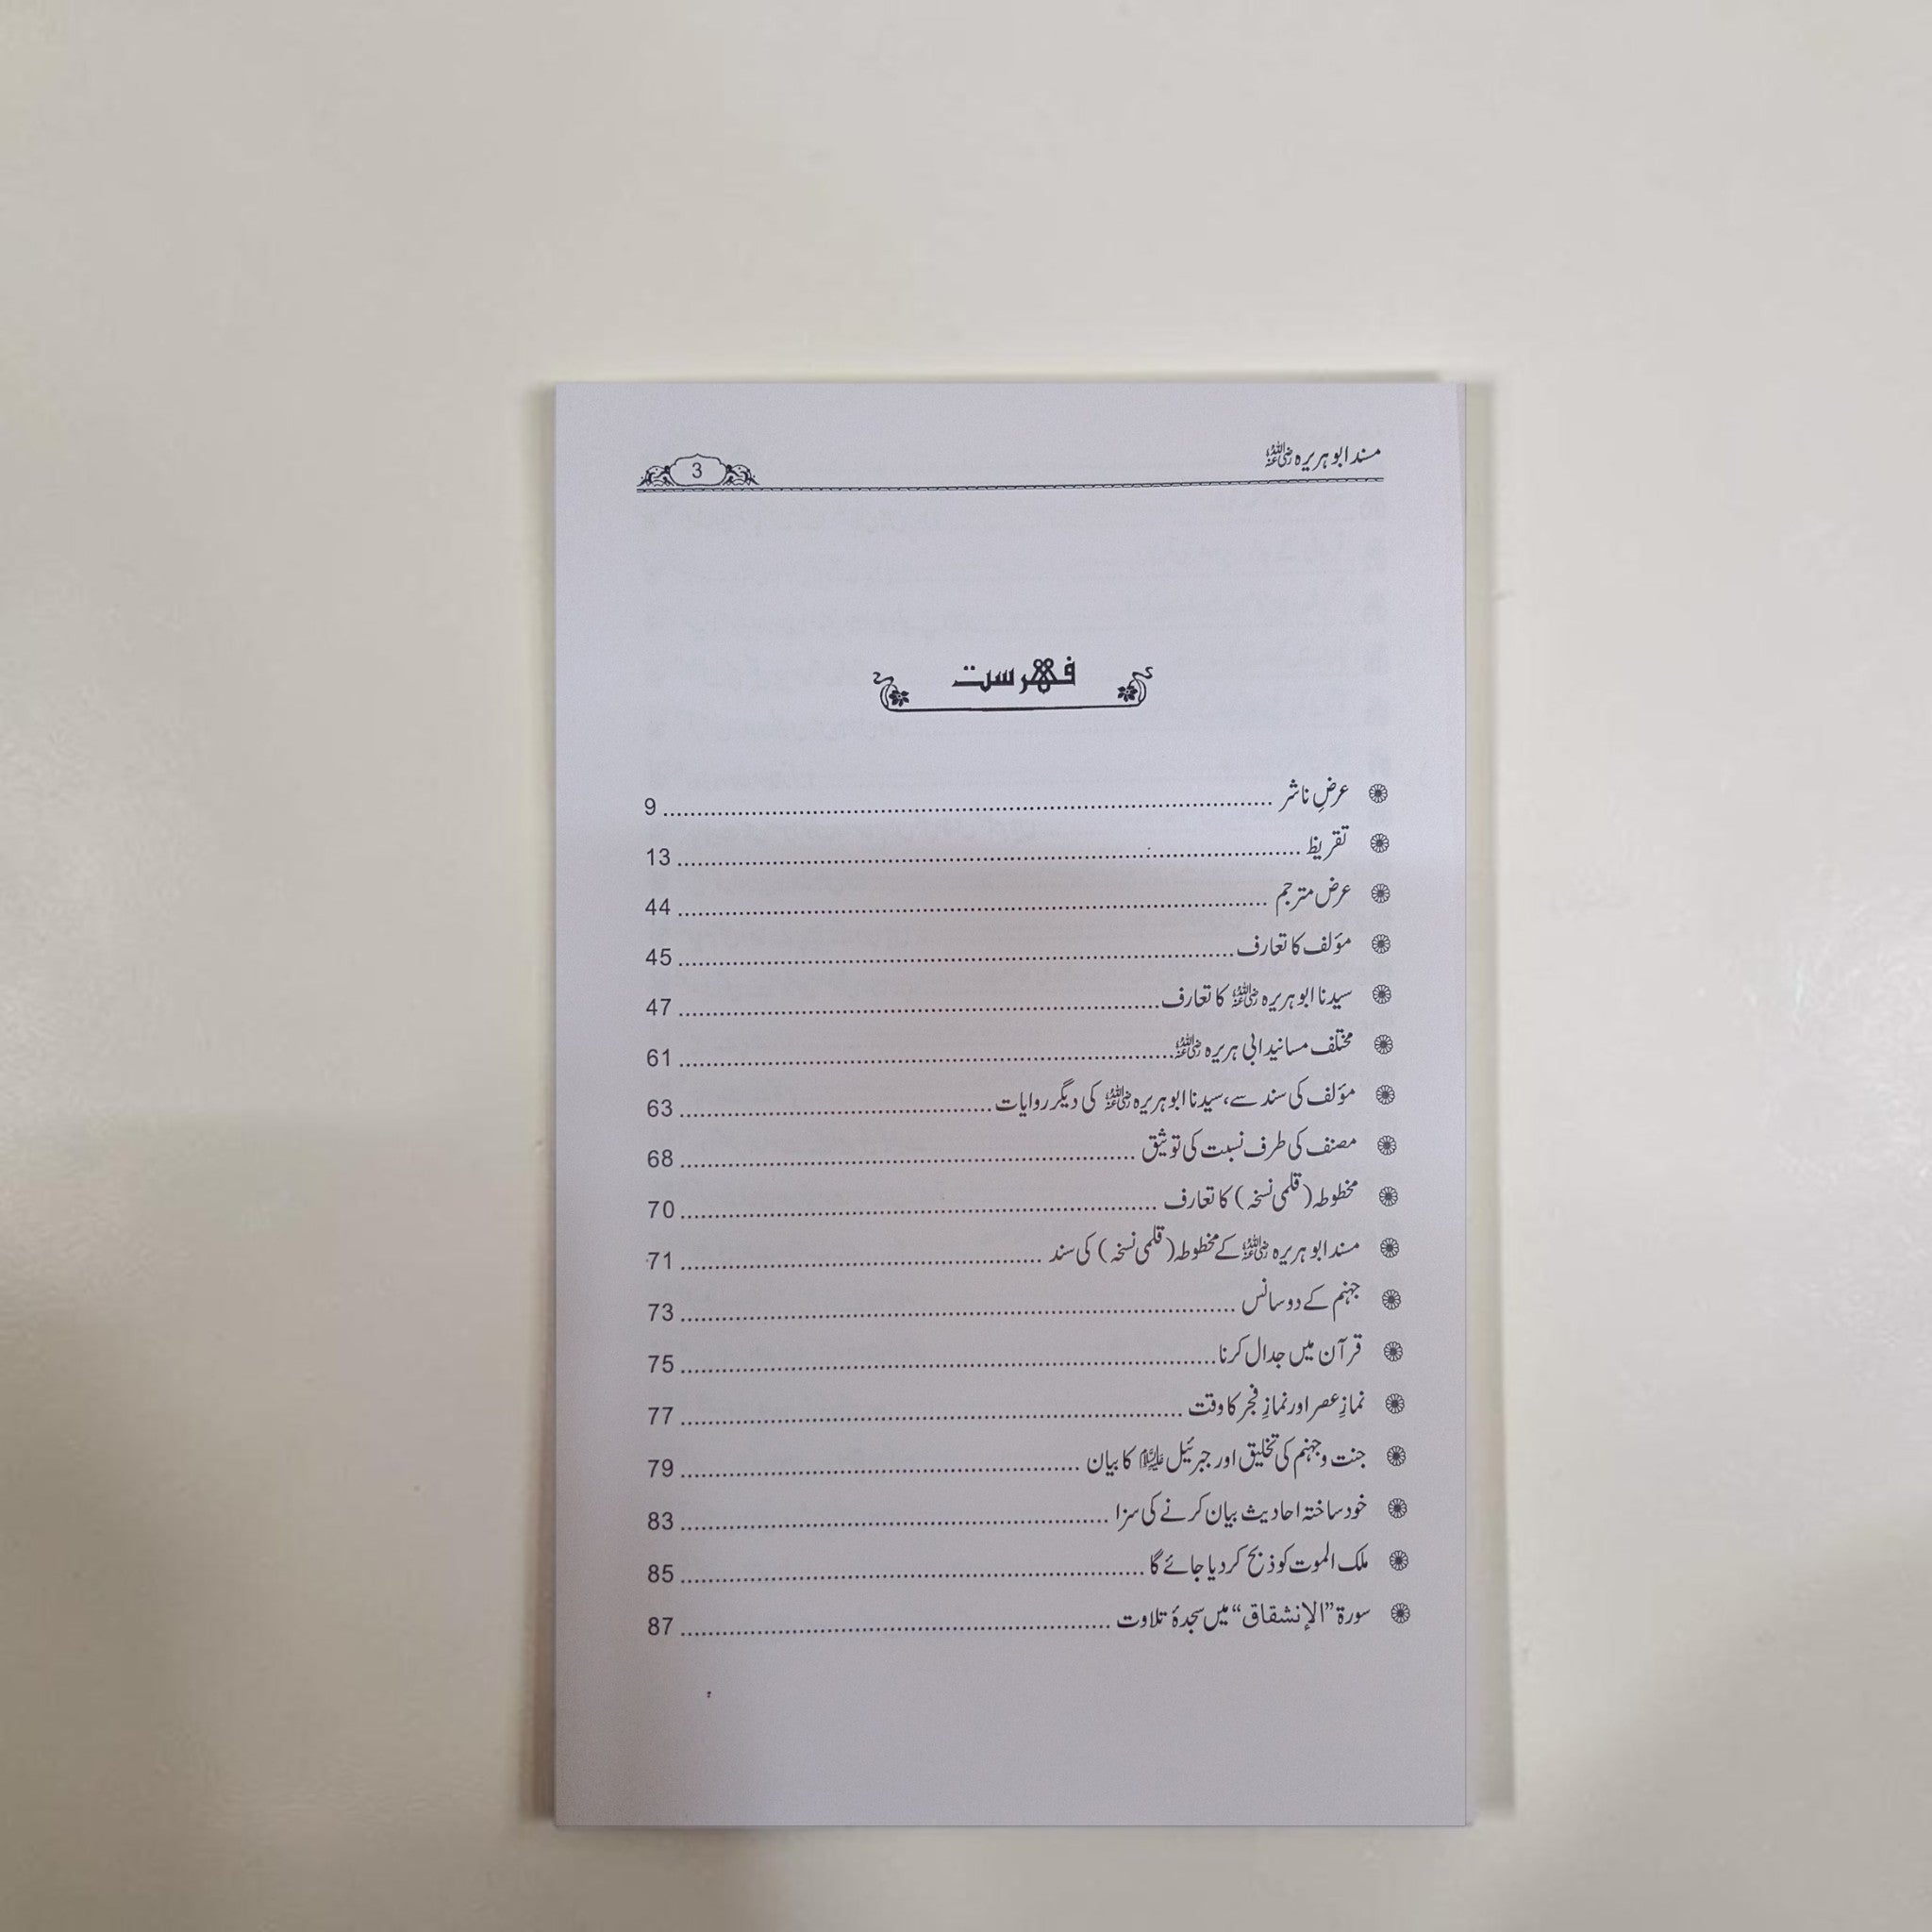 مسند ابو ہریرہ رضی اللہ عنہ 3
فہرست
عرضِ ناشر ........ 9
تقریظ ........ 13
عرض مترجم ........ 44
مؤلف کا تعارف ........ 45
سیدنا ابو ہریرہ رضی اللہ عنہ کا تعارف ........ 47
مختلف مسانید ابی ہریرہ رضی اللہ عنہ ........ 61
مؤلف کی سند سے، سیدنا ابو ہریرہ رضی اللہ عنہ کی دیگر روایات ........ 63
مصنف کی طرف نسبت کی توثیق ........ 68
مخطوطہ (قلمی نسخہ) کا تعارف ........ 70
مسند ابو ہریرہ رضی اللہ عنہ کے مخطوطہ (قلمی نسخہ) کی سند ........ 71
جہنم کے دو سانس ........ 73
قرآن میں جدال کرنا ........ 75
نمازِ عصر اور نمازِ فجر کا وقت ........ 77
جنت و جہنم کی تخلیق اور جبرئیل علیہ السلام کا بیان ........ 79
خود ساختہ احادیث بیان کرنے کی سزا ........ 83
ملک الموت کو ذبح کر دیا جائے گا ........ 85
سورۃ ”الإنشقاق“ میں سجدۂ تلاوت ........ 87